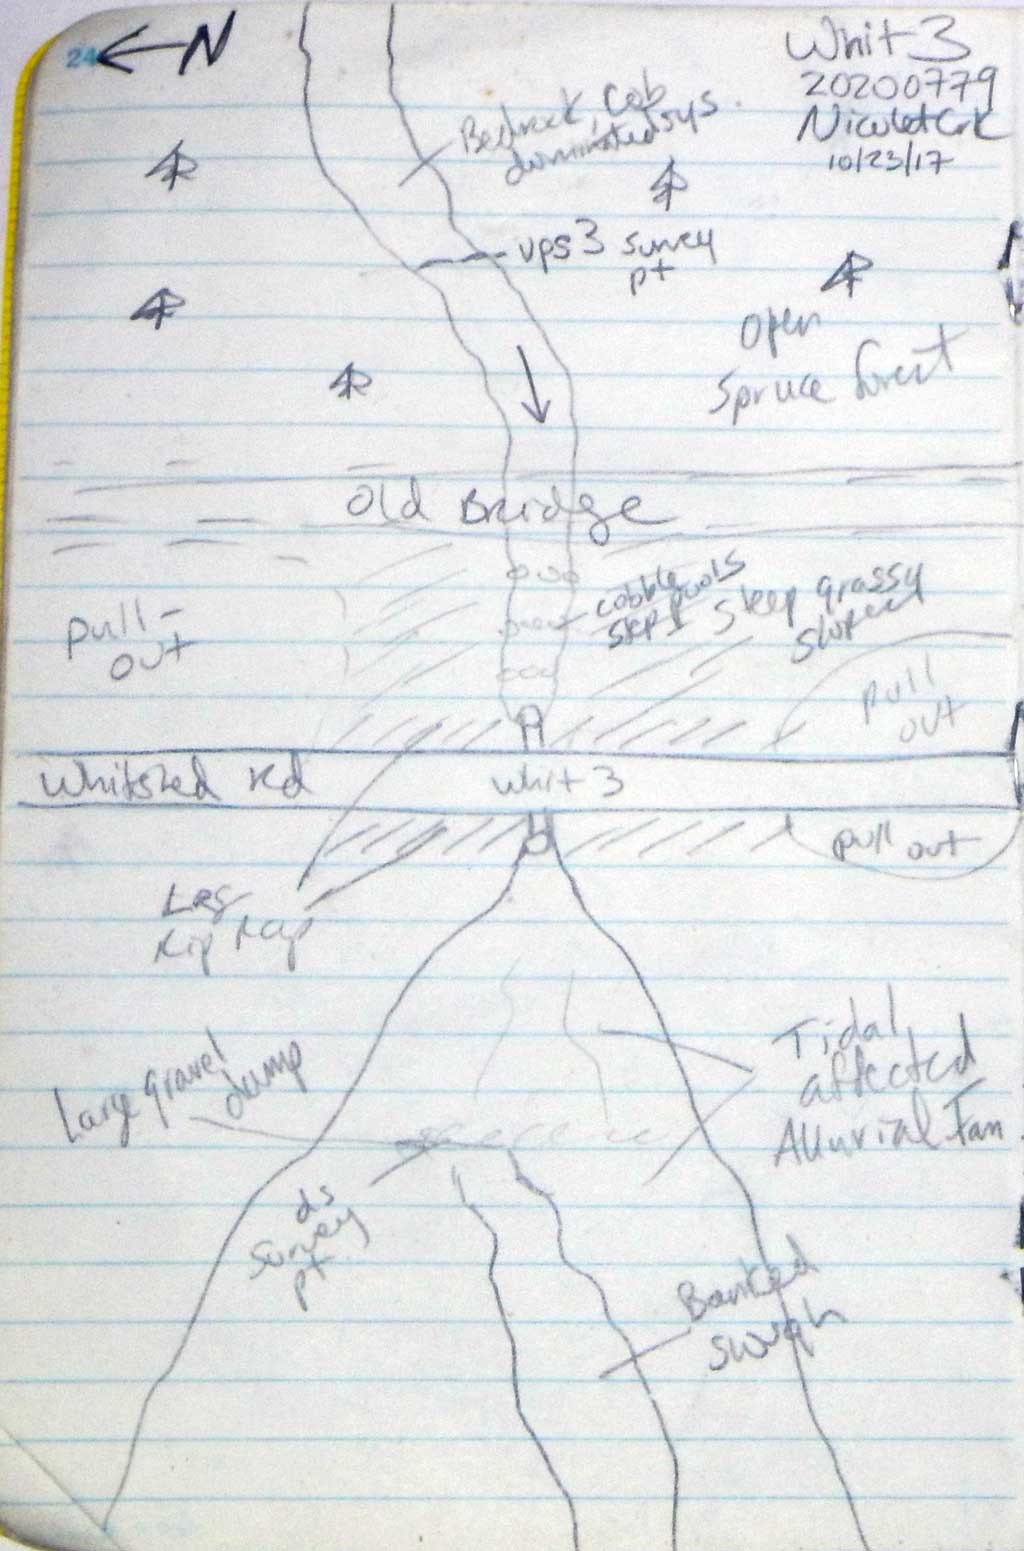 24
N
Whit 3
20200779
Nicolet Crk
10/23/17
Bedrock, Cob
dominated sys.
ups 3 survey
pt
Open
Spruce forest
Old Bridge
cobble
step pools
Steep grassy
slopes
Pull-
out
pull
out
Whitshed Rd
Whit 3
pull out
Lrg
Rip Rap
Large gravel
dump
Tidal
affected
Alluvial Fan
ds
survey
pt
Banked
slough